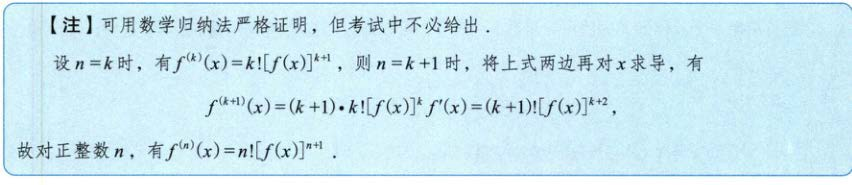 【注】可用数学归纳法严格证明，但考试中不必给出．
设 n=k 时，有 f^{(k)}(x)=k![f(x)]^{k+1}，则 n=k+1 时，将上式两边再对 x 求导，有
f^{(k+1)}(x)=(k+1)•k![f(x)]^{k} f′(x)=(k+1)![f(x)]^{k+2}，
故对正整数 n，有 f^{(n)}(x)=n![f(x)]^{n+1}．